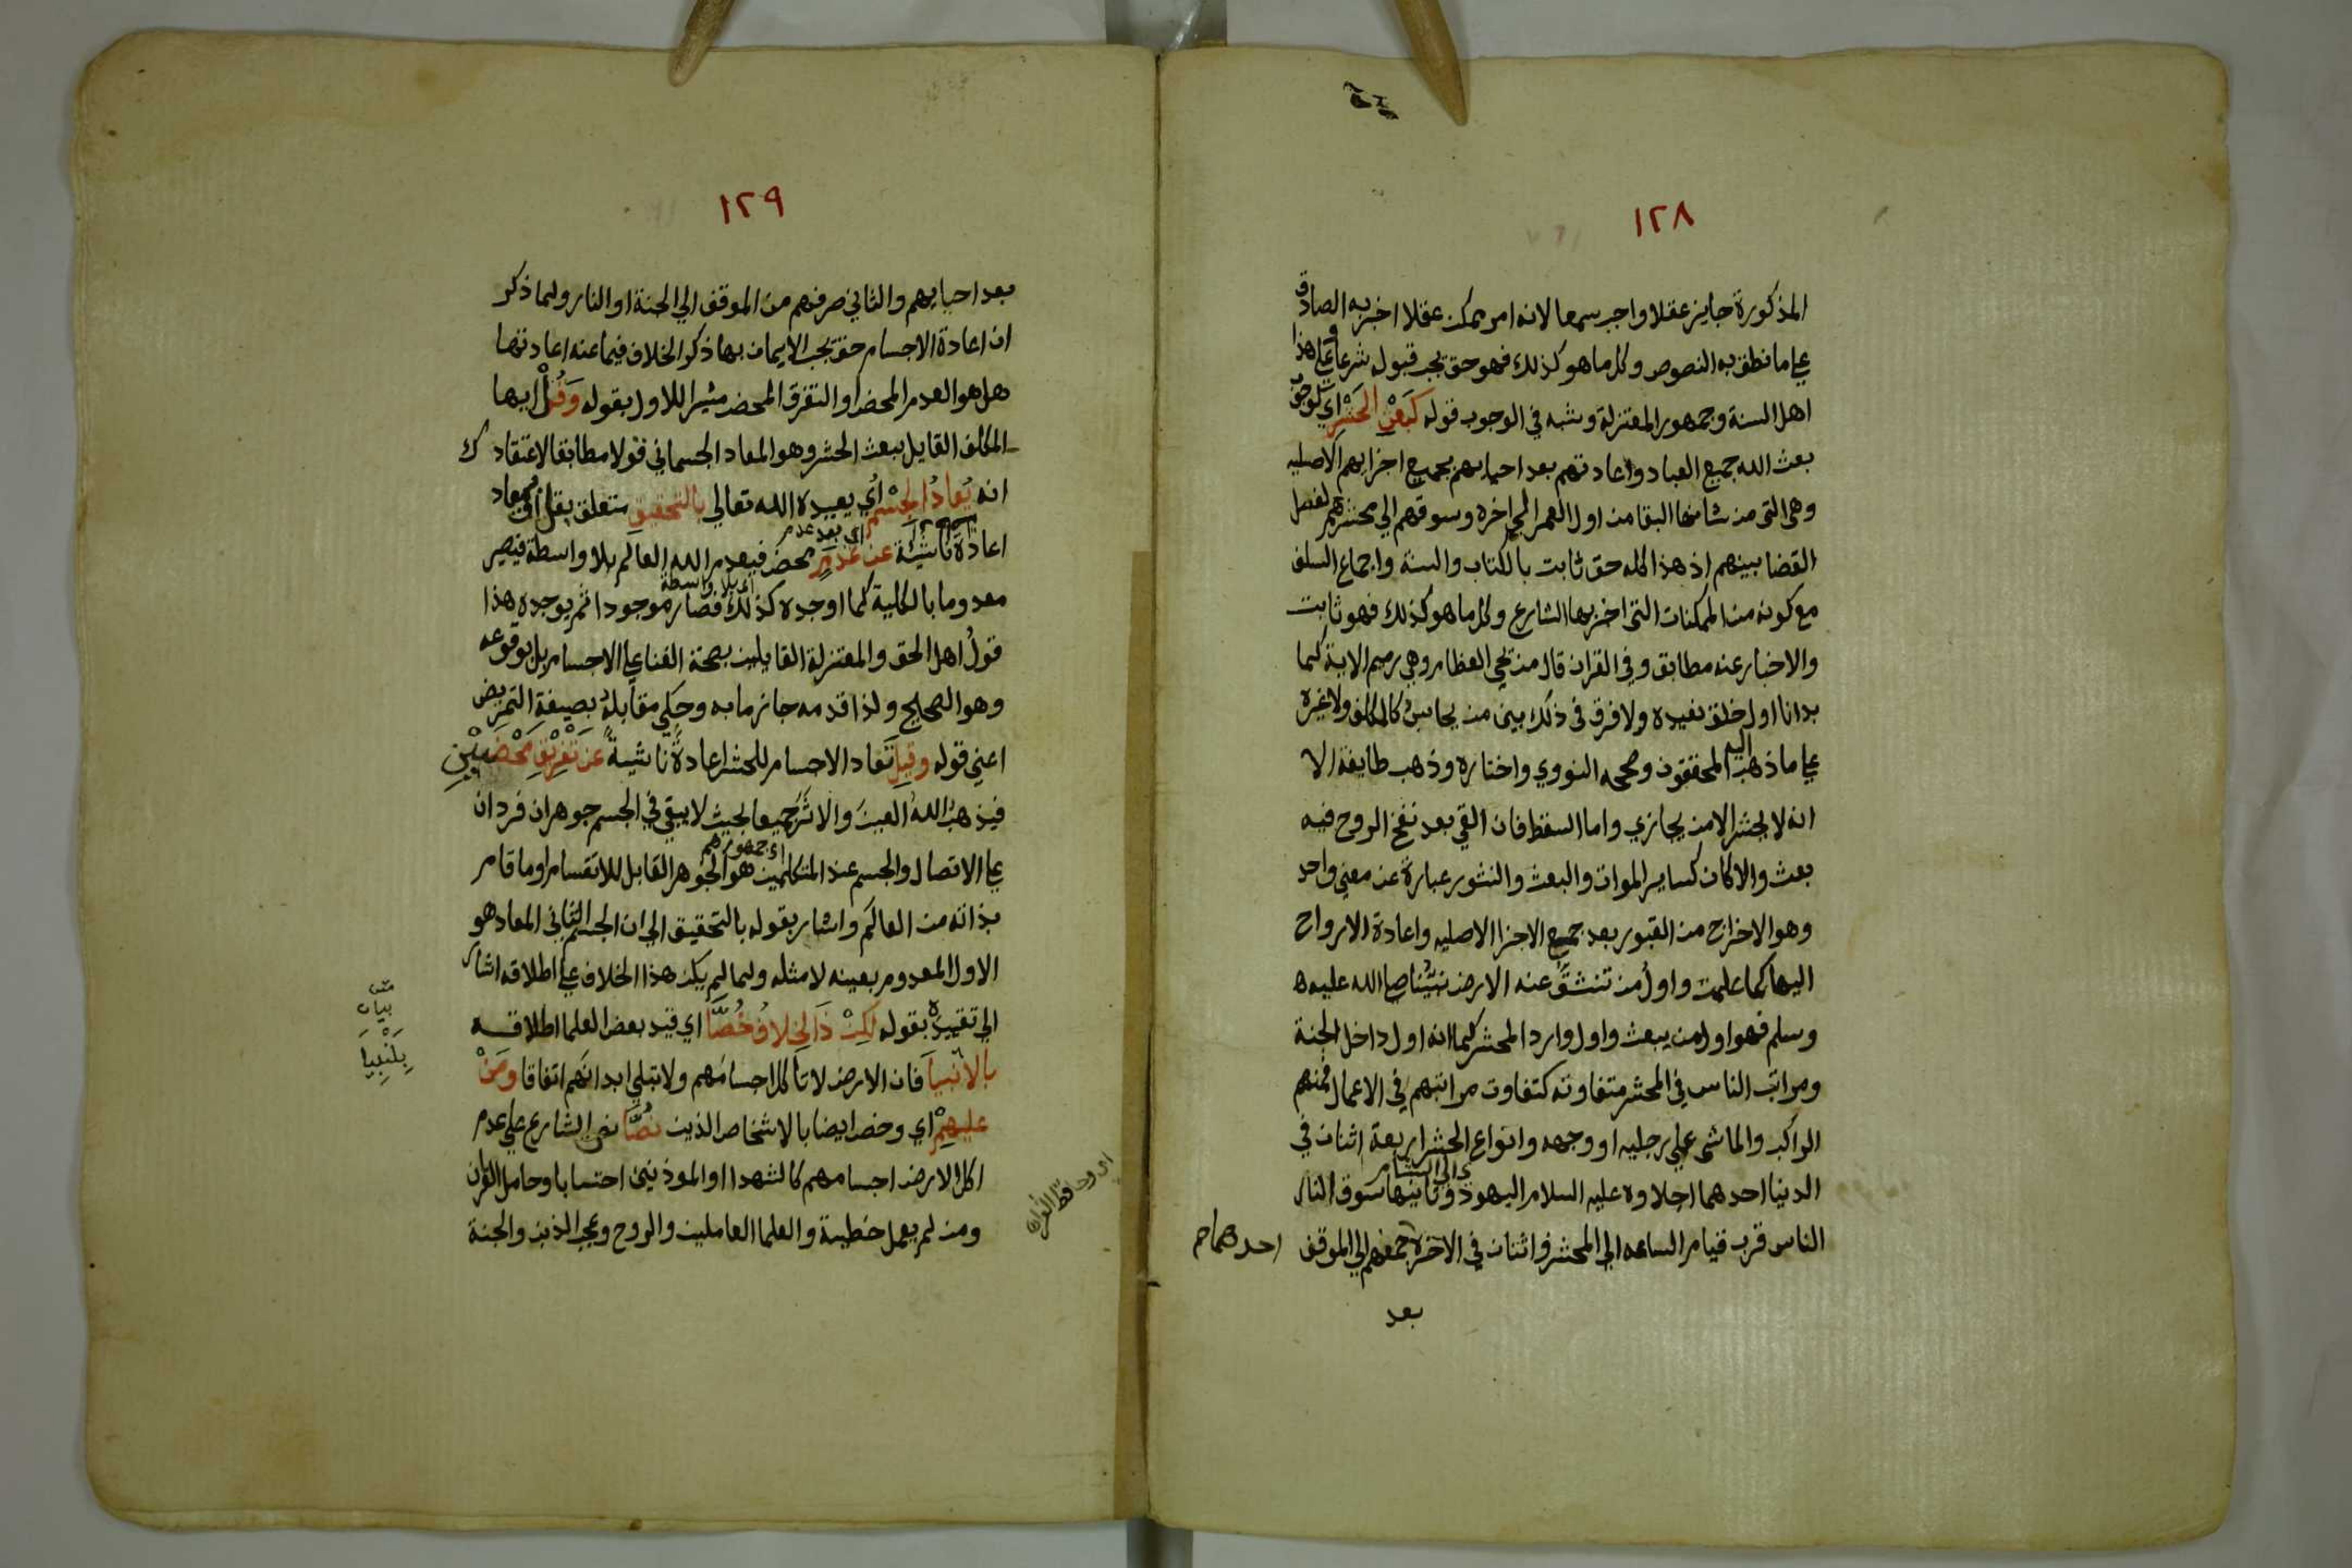 ١٢٨
المذكورة جايز عقلا واجب سمعا لانه امر ممكن عقلا اخبر به الصادق
علي ما نطق به النصوص وكل ما هو كذلك فهو حق يجب قبوله شرعا وعلي هذا
اهل السنة وجمهور المعتزلة وشبه في الوجوب قوله كَبَعْثِ الحَشْرِ اي كوجوب
بعث الله جميع العباد واعادتهم بعد احيايهم بجميع اجزايهم الاصليه
وهي التي من شانها البقا من اول العمر الي اخره وسوقهم الي محشرهم لفصل
القضا بينهم اذ هذا كله حق ثابت بالكتاب والسنة واجماع السلف
مع كونه من الممكنات التي اخبر بها الشارع وكل ما هو كذلك فهو ثابت
والاخبار عنه مطابق وفي القران قال من يحي العظام وهي رميم الاية كما
بدانا اول خلق نعيده ولا فرق في ذلك بين من يحاسب كالمكلف ولا غيره
علي ما ذهب اليه المحققون وصححه النووي واختاره وذهب طايفة الا
انه لا يحشر الا من يجازي واما السقط فان القي بعد نفخ الروح فيه
بعث والا كان كساير الموات والبعث والنشور عبارة عن معني واحد
وهو الاخراج من القبور بعد جميع الاجزا الاصليه واعادة الارواح
اليها كما علمت واول من تنشق عنه الارض نبيّنا صلي الله عليه ه
وسلم فهو اول من يبعث واول وارد المحشر كما انه اول داخل الجنة
ومراتب الناس في المحشر متفاوته كتفاوت مراتبهم في الاعمال فمنهم
الراكب والماشي علي رجليه او وجهه وانواع الحشر اربعة اثنان في
الدنيا احدهما اجلاوه عليه السلام اليهود الي الشام وثانيها سوق النار
الناس قرب قيام الساعه الي المحشر واثنان في الاخرة جمعهم الي الموقف احدهما
بعد
١٢٩
بعد احيايهم والثاني صرفهم من الموقف الي الجنة او النار ولما ذكر
ان اعادة الاجسام حق يجب الايمان بها ذكر الخلاف فيما عنه اعادتها
هل هو العدم المحض او التفرق المحض مشيرا للاول بقوله وَقُلْ ايها
المكلف القايل ببعث الحشر وهو المعاد الجسماني قولا مطابقا لاعتقادك
انه يُعادُ الجِسْمُ اي يعيده الله تعالي بالتحقيق متعلق بقل او بيعاد
اعادة ناشئة عن عَدَمٍ اي بعد عدم محض فيعدم الله العالم بلا واسطة فيصير
معدوما بالكلية كما اوجده كذلك اي بلا واسطة فصار موجودا ثم يوجده هذا
قول اهل الحق والمعتزلة القايلين بصحة الفنا علي الاجسام بل بوقوعه
وهو الصحيح ولذا قدمه جازما به وحكي مقابله بصيغة التمريض
اعني قوله وقيل تعاد الاجسام للحشر اعادة ناشية عن تَفْرِيْقٍ مَحْضَيْنِ
فيذهب الله العين والاثر جميعا بحيث لا يبقي في الجسم جوهران فردان
علي الاتصال والجسم عند المتكلمين اي جمهورهم هو الجوهر القابل للانقسام او ما قام
بذاته من العالم واشار بقوله بالتحقيق الي ان الجسم الثاني المعاد هو
الاول المعدوم بعينه لا مثله ولما لم يكن هذا الخلاف علي اطلاقه اشار
الي تقييده بقوله لَكِنْ ذَا الخِلافُ خُصَّا اي قيد بعض العلما اطلاقه
بالانبيا فان الارض لا تاكل اجسامهم ولا تبلي ابدانهم اتفاقا وَمَنْ
عليهِمْ اي وخص ايضا بالاشخاص الذين نُصَّا نص الشارع علي عدم
اكل الارض اجسامهم كالشهدا او الموذنين احتسابا وحامل القران
ومن لم يعمل خطيئة والعلما العاملين والروح وعجب الذنب والجنة
متن
بيان
بِلَنْبِيَا